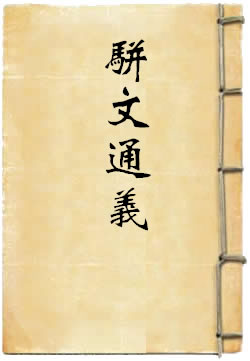 駢文通義